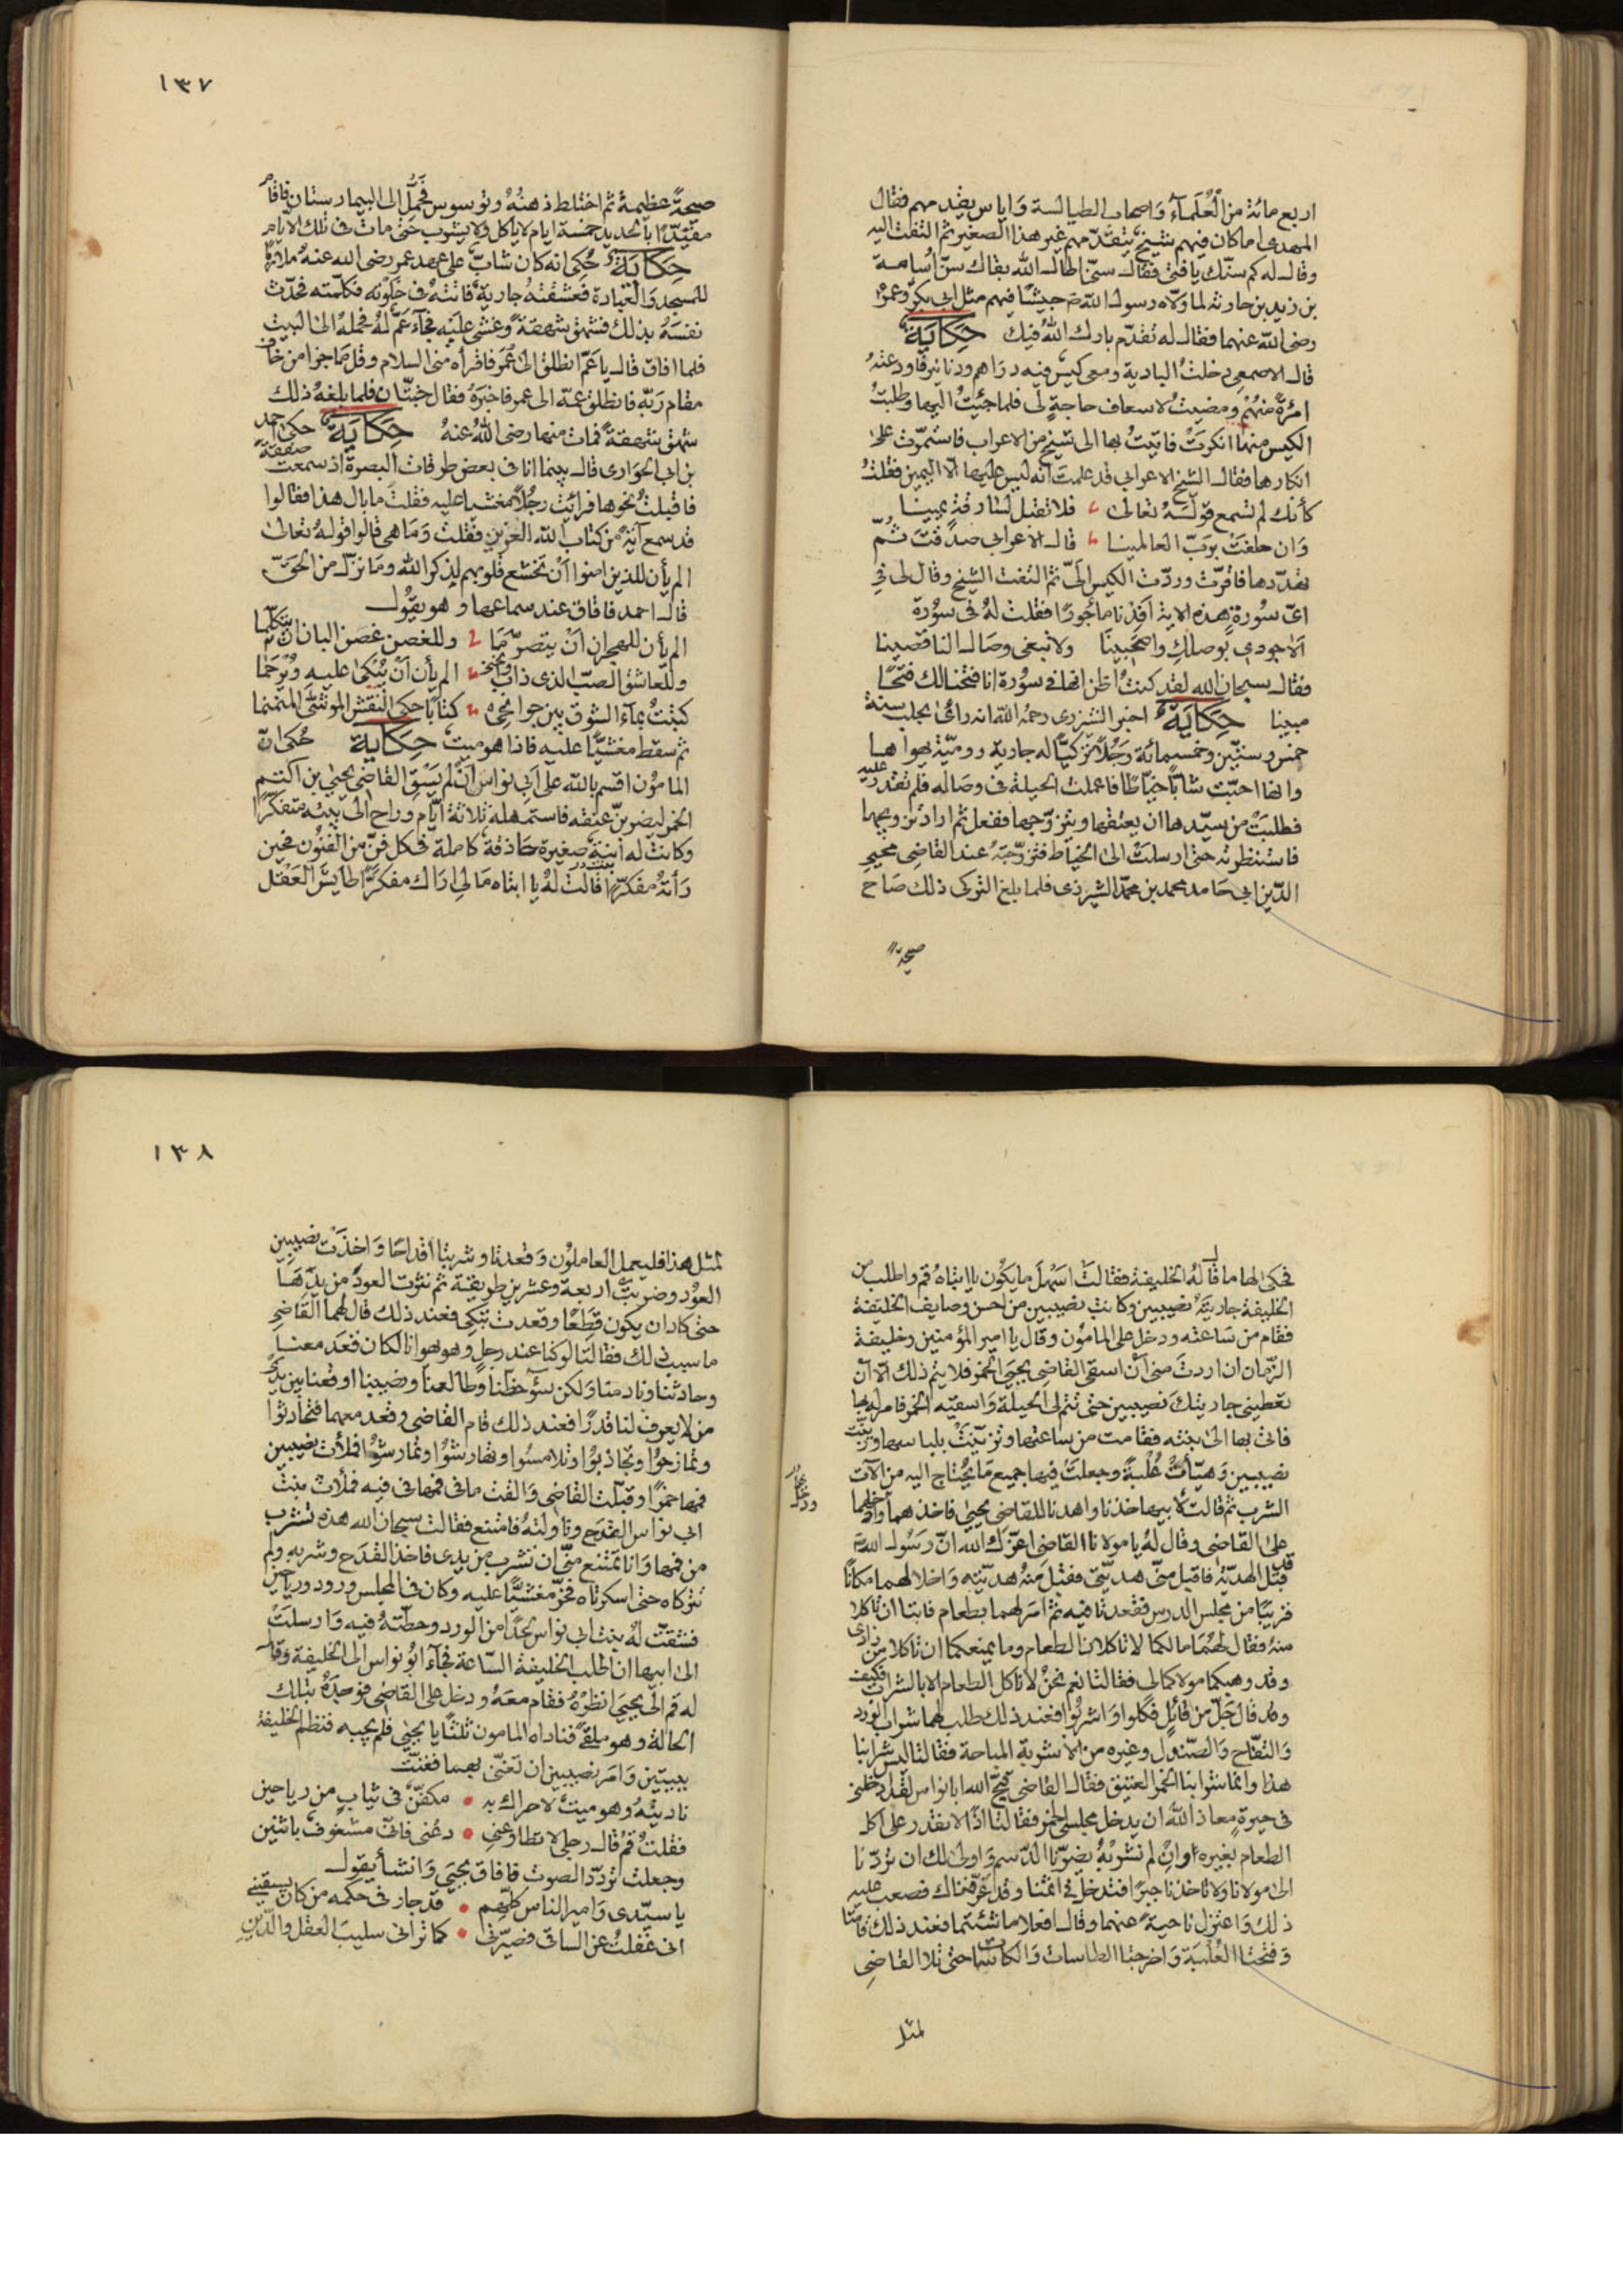 اربع مائة من العلماء واصحاب الطيالسة واياس يقدمهم فقال
المهدى اما كان فيهم شيخ يتقدمهم غير هذا الصغير ثم التفت اليه
وقال له كم سنك يا فتى فقال سنى اطال الله بقاك سن اسامة
بن زيد بن حارثه لما ولاه رسول الله جيشا فيهم مثل ابى بكر وعمر
رضى الله عنهما فقال له تقدم بارك الله فيك حكاية
قال الاصمعى دخلت البادية ومعى كيس فيه دراهم ودنانير فاودعته
امرة منهم ومضيت لاسعاف حاجة لى فلما جئيت اليها وطلبت
الكيس منها انكرت فاتيت بها الى شيخ من الاعراب فاستمرت على
انكارها فقال الشيخ الاعرابى قد علمت انه ليس عليها الا اليمين فقلت
كأنك لم تسمع قوله تعالى فلا تقبل لسارقة يمينا
وان حلفت برب العالمينا قال الاعرابى صدقت ثم
تهددها فاقرت وردت الكيس الى ثم التفت الشيخ وقال لى فى
اى سورة هذه الاية افدنا ماجورا فقلت له فى سورة
الا جودى بوصلك واصحبينا ولا تبغى وصال الناقصينا
فقال سبحان الله لقد كنت اظن انها فى سورة انا فتحنا لك فتحا
مبينا حكاية اخبر الشيزرى رحمه الله انه رأى بحلب سنة
خمس وستين وخمسمائة رجلا تركيا له جارية رومية يهواها
وانها احبت شابا خياطا فاعملت الحيلة فى وصاله فلم تقدر عليه
فطلبت من سيدها ان يعتقها ويتزوجها ففعل ثم اراد تزويجها
فاستنظرته حتى ارسلت الى الخياط فتزوجته عند القاضى محيى
الدين ابى حامد محمد بن محمد الشهرزى فلما بلغ التركى ذلك صاح
صيحة
١٣٧
صيحة عظيمة ثم اختلط ذهنه وتوسوس فحمل الى البيمارستان فاقام
مقيدا بالحديد خمسة ايام لا ياكل ولا يشرب حتى مات فى تلك الايام
حكاية حكى انه كان شاب على عهد عمر رضى الله عنه ملازما
للمسجد والعبادة فعشقته جارية فاتته فى خلوته فكلمته فحدث
نفسه بذلك فشهق شهقة وغشى عليه فجاء عم له فحمله الى البيت
فلما افاق قال يا عم انطلق الى عمر فاقراه منى السلام وقل ما جزا من خاف
مقام ربه فانطلق عمه الى عمر فاخبره فقال جنتان فلما بلغه ذلك
شهق شهقة فمات منها رضى الله عنه حكاية حكى احمد
بن ابى الحوارى قال بينما انا فى بعض طرقات البصرة اذ سمعت صعقة
فاقبلت نحوها فرائيت رجلا مغشيا عليه فقلت ما بال هذا فقالوا
قد سمع آية من كتاب الله العزيز فقلت وما هى قالوا قوله تعالى
الم يأن للذين امنوا ان تخشع قلوبهم لذكر الله وما نزل من الحق
قال احمد فافاق عند سماعها وهو يقول
الم يأن للهجران ان يتصرما وللغصن غصن البان ان يتكلما
وللعاشق الصب الذى ذاب الم يأن ان يبكى عليه ويرحما
كتبت بماء الشوق بين جوانحى كتابا حكى النقش الموشى المنمنما
ثم سقط مغشيا عليه فاذا هو ميت حكاية حكى ان
المامون اقسم بالله على ابى نواس ان لم يسق القاضى يحيى بن اكتم
الخمر ليضربن عنقه فاستمهله ثلاثة ايام وراح الى بيته متفكرا
وكانت له ابنة صغيرة حاذقة كاملة فى كل فن من الفنون فحين
رأته مفكرا قالت له يا ابتاه ما لى اراك مفكرا طايش العقل
فحكى لها ما قاله الخليفة فقالت اسهل ما يكون يا ابتاه قم واطلب من
الخليفة جاريته نصيبين وكانت نصيبين من احسن وصايف الخليفة
فقام من ساعته ودخل على المامون وقال يا امير المؤمنين وخليفة
الزمان ان اردت منى ان اسقى القاضى يحيى الخمر فلا يتم ذلك الا ان
تعطينى جاريتك نصيبين حتى تتم لى الحيلة واسقيه الخمر فامر له بها
فاتى بها الى بنته فقامت من ساعتها وتزينت بلباسها وزينت
نصيبين وهيأت علبة وجعلت فيها جميع ما يحتاج اليه من الآت
الشرب ثم قالت لابيها خذنا واهدنا للقاضى يحيى فاخذهما وادخلهما
على القاضى وقال له يا مولانا القاضى اعزك الله ان رسول الله
قد قبل الهدية فاقبل منى هديتى فقبل منه هديته واخلا لهما مكانا
قريبا من مجلس الدرس فقعدتا فيه ثم امر لهما بطعام فابتا ان تاكلا
منه فقال لهما ما لكما لا تاكلان الطعام وما يمنعكما ان تاكلا من زادى
وقد وهبكما مولاكما لى فقالتا نعم نحن لا ناكل الطعام الا بالشراب فكيف
وقد قال جل من قائل فكلوا واشربوا فعند ذلك طلب لهما شراب الورد
والتفاح والصندل وغيره من الاشربة المباحة فقالتا ليس شرابنا
هذا وانما شرابنا الخمر العتيق فقال القاضى قبح الله ابا نواس لقد ادخلنى
فى حيرة معاذ الله ان يدخل مجلسى الخمر فقالتا اذا لا نقدر على اكل
الطعام بغيره وان لم نشربه يضرنا الدسم واولى لك ان تردنا
الى مولانا ولا تاخذنا جبرا فتدخل فى اثمنا وقد عرفناك فصعب عليه
ذلك واعتزل ناحية عنهما وقال افعلا ما شئتما فعند ذلك قامتا
وفتحتا العلبة واخرجتا الطاسات والكاسات حتى تلا القاضى
لمثل
١٣٨
لمثل هذا فليعمل العاملون وقعدتا وشربتا اقداحا واخذت نصيبين
العود وضربت اربعة وعشرين طريقة ثم نثرت العود من يدها
حتى كاد ان يكون قطعا وقعدت تبكى فعند ذلك قال لهما القاضى
ما سبب ذلك فقالتا لو كنا عند رجل وهو يهوانا لكان قعد معنا
وحادثنا ونادمنا ولكن سوء حظنا وطالعنا ونصيبنا اوقعنا بين يدى
من لا يعرف لنا قدرا فعند ذلك قام القاضى وقعد معهما فتحادثوا
وتمازحوا وتجاذبوا وتلامسوا وتهارشوا وتمارشوا فملأت نصيبين
فمها خمرا وقبلت القاضى والقت ما فى فمها فى فيه فملأت بنت
ابى نواس القدح وناولته فامتنع فقالت سبحان الله هذه تشرب
من فمها وانا تمتنع منى ان تشرب من يدى فاخذ القدح وشربه ولم
تتركاه حتى اسكرتاه فخر مغشيا عليه وكان فى المجلس ورود ورياحين
فشقت له بنت ابى نواس لحدا من الورد وحطته فيه وارسلت
الى ابيها ان اطلب الخليفة الساعة فجاء ابو نواس الى الخليفة وقال
له قم الى يحيى انظره فقام معه ودخل على القاضى فوجده بتلك
الحالة وهو ملقى فناداه المامون ثلثا يا يحيى فلم يجبه فنظم الخليفة
ببيتين وامر نصيبين ان تغنى بهما فغنت
ناديته وهو ميت لا حراك به مكفن فى ثياب من رياحين
فقلت قم قال رجلى لا تطاوعنى دعنى فانى مشغوف باثنين
وجعلت تردد الصوت فافاق يحيى وانشأ يقول
يا سيدى وامير الناس كلهم قد جار فى حكمه من كان يسقينى
انى غفلت عن الساقى فصيرنى كما ترانى سليب العقل والدين